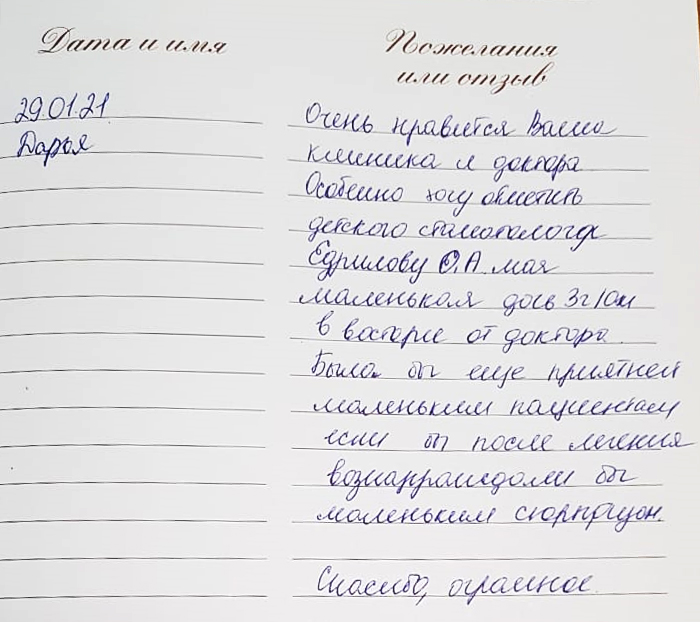 Дата и имя
Пожелания
или отзыв
29.01.21
Дарья
Очень нравится Ваша
клиника и доктора
Особенно хочу отметить
детского стоматолога
Едрилову О.А. моя
маленькая дочь 3г10м
в восторге от доктора.
Было бы еще приятней
маленьким пациентам
если бы после лечения
вознаграждали бы
маленьким сюрпризом.
Спасибо, огромное.